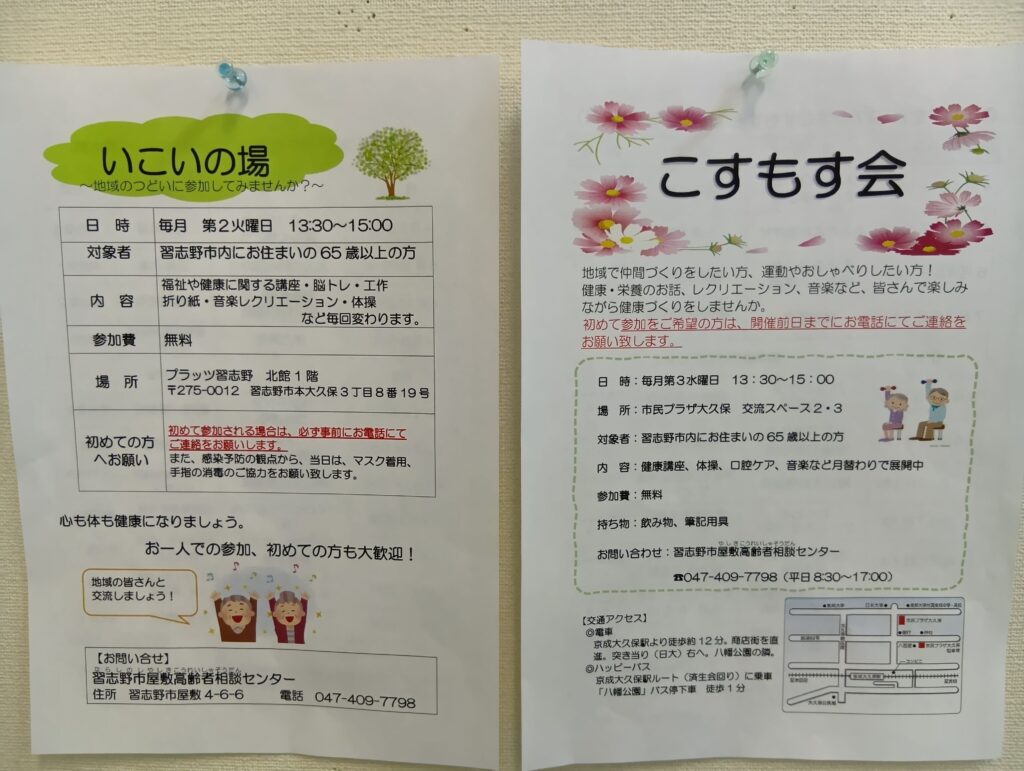 いこいの場
～地域のつどいに参加してみませんか？～
日 時 毎月 第２火曜日 13:30～15:00
対象者 習志野市内にお住まいの 65 歳以上の方
内 容
福祉や健康に関する講座・脳トレ・工作
折り紙・音楽レクリエーション・体操
など毎回変わります。
参加費 無料
場 所
プラッツ習志野 北館１階
〒275-0012 習志野市本大久保３丁目８番 19 号
初めての方
へお願い
初めて参加される場合は、必ず事前にお電話にて
ご連絡をお願いします。
また、感染予防の観点から、当日は、マスク着用、
手指の消毒のご協力をお願い致します。
心も体も健康になりましょう。
お一人での参加、初めての方も大歓迎！
地域の皆さんと
交流しましょう！
【お問い合せ】
習志野市屋敷高齢者相談センター
住所 習志野市屋敷 4-6-6 電話 047-409-7798
こすもす会
地域で仲間づくりをしたい方、運動やおしゃべりしたい方！
健康・栄養のお話、レクリエーション、音楽など、皆さんで楽しみ
ながら健康づくりをしませんか。
初めて参加をご希望の方は、開催前日までにお電話にてご連絡を
お願い致します。
日 時：毎月第３水曜日 13：30～15：00
場 所：市民プラザ大久保 交流スペース２・３
対象者：習志野市内にお住まいの 65 歳以上の方
内 容：健康講座、体操、口腔ケア、音楽など月替わりで展開中
参加費：無料
持ち物：飲み物、筆記用具
やしきこうれいしゃそうだん
お問い合わせ：習志野市屋敷高齢者相談センター
☎047-409-7798（平日 8:30～17:00）
【交通アクセス】
◎電車
京成大久保駅より徒歩約 12 分。商店街を直
進。突き当り（日大）右へ。八幡公園の隣。
◎ハッピーバス
京成大久保駅ルート（済生会回り）に乗車
「八幡公園」バス停下車 徒歩１分
市民プラザ大久保